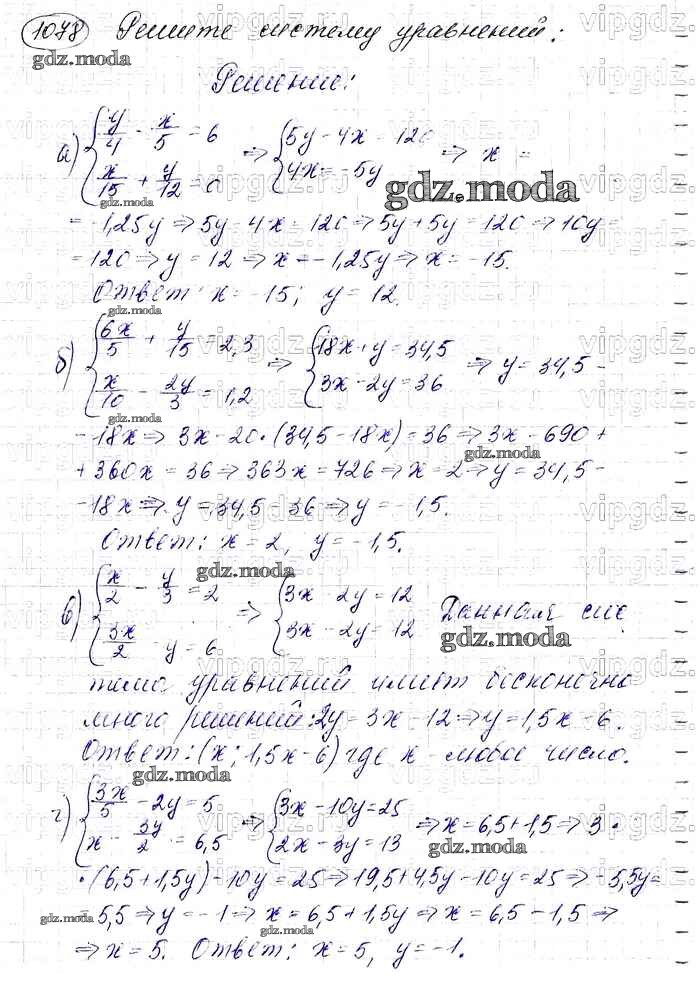 1078 Решите систему уравнений:
gdz.moda
Решение:
а) { y/4 - x/5 = 6 ; x/15 + y/12 = 0 ⇒ { 5y - 4x = 120 ; 4x = -5y ⇒ x =
gdz.moda
gdz.moda
= -1,25y ⇒ 5y - 4x = 120 ⇒ 5y + 5y = 120 ⇒ 10y =
= 120 ⇒ y = 12 ⇒ x = -1,25y ⇒ x = -15.
Ответ: x = -15; y = 12.
gdz.moda
б) { 6x/5 + y/15 = 2,3 ; x/10 - 2y/3 = 1,2 ⇒ { 18x + y = 34,5 ; 3x - 2y = 36 ⇒ y = 34,5 -
gdz.moda
- 18x ⇒ 3x - 20·(34,5 - 18x) = 36 ⇒ 3x - 690 +
gdz.moda
+ 360x = 36 ⇒ 363x = 726 ⇒ x = 2 ⇒ y = 34,5 -
- 18x ⇒ y = 34,5 - 36 ⇒ y = -1,5.
Ответ: x = 2, y = -1,5.
gdz.moda
в) { x/2 - y/3 = 2 ; 3x/2 - y = 6 ⇒ { 3x - 2y = 12 ; 3x - 2y = 12 Данная сис
gdz.moda
тема уравнений имеет бесконечно
много решений: 2y = 3x - 12 ⇒ y = 1,5x - 6.
Ответ: (x; 1,5x - 6) где x - любое число.
gdz.moda
г) { 3x/5 - 2y = 5 ; x - 3y/2 = 6,5 ⇒ { 3x - 10y = 25 ; 2x - 3y = 13 ⇒ x = 6,5 + 1,5 ⇒ 3·
gdz.moda
·(6,5 + 1,5y) - 10y = 25 ⇒ 19,5 + 4,5y - 10y = 25 ⇒ -5,5y =
gdz.moda = 5,5 ⇒ y = -1 ⇒ x = 6,5 + 1,5y ⇒ x = 6,5 - 1,5 ⇒
gdz.moda
⇒ x = 5. Ответ: x = 5, y = -1.